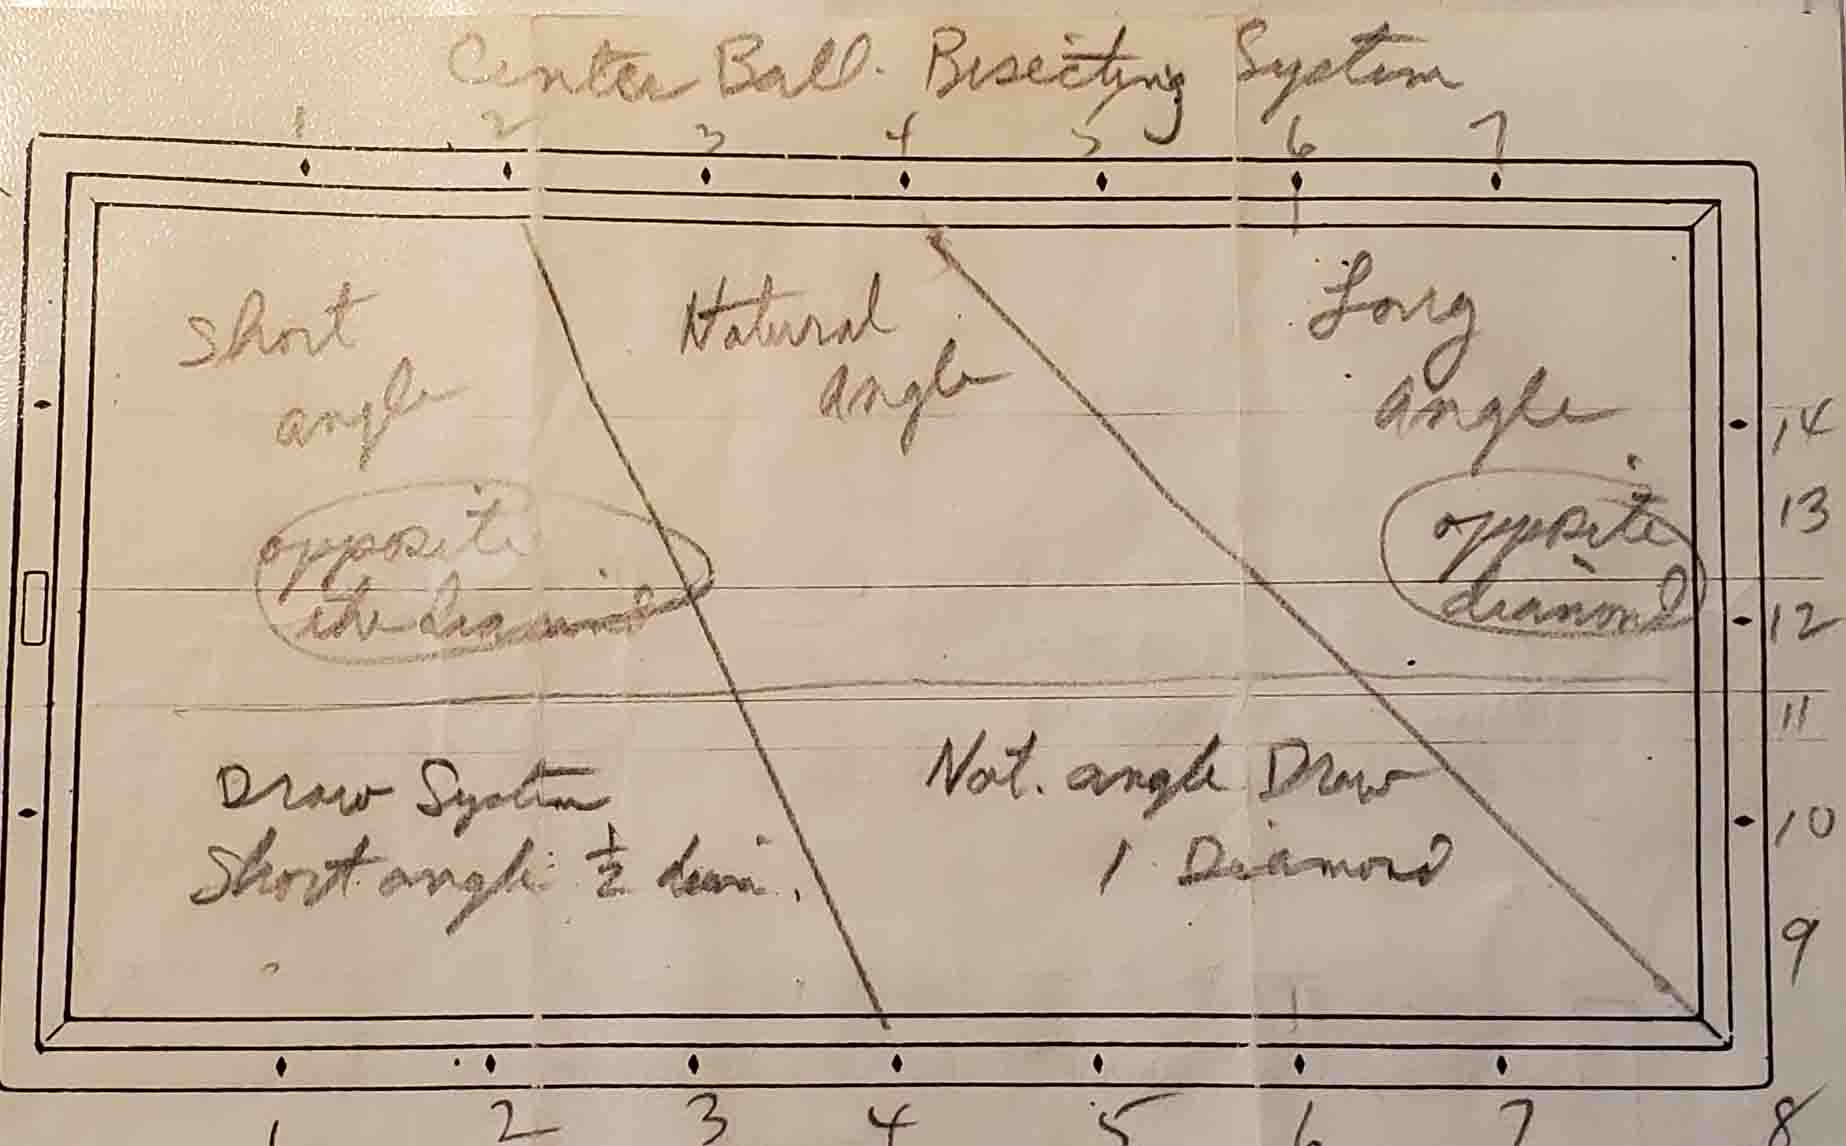 Center Ball. Bisecting System
1 2 3 4 5 6 7
Short
angle
Natural
angle
Long
angle
14
13
12
11
10
9
opposite
the
opposite
diamond
Draw System
Short angle ½
Nat. angle Draw
1 Diamond
1 2 3 4 5 6 7 8